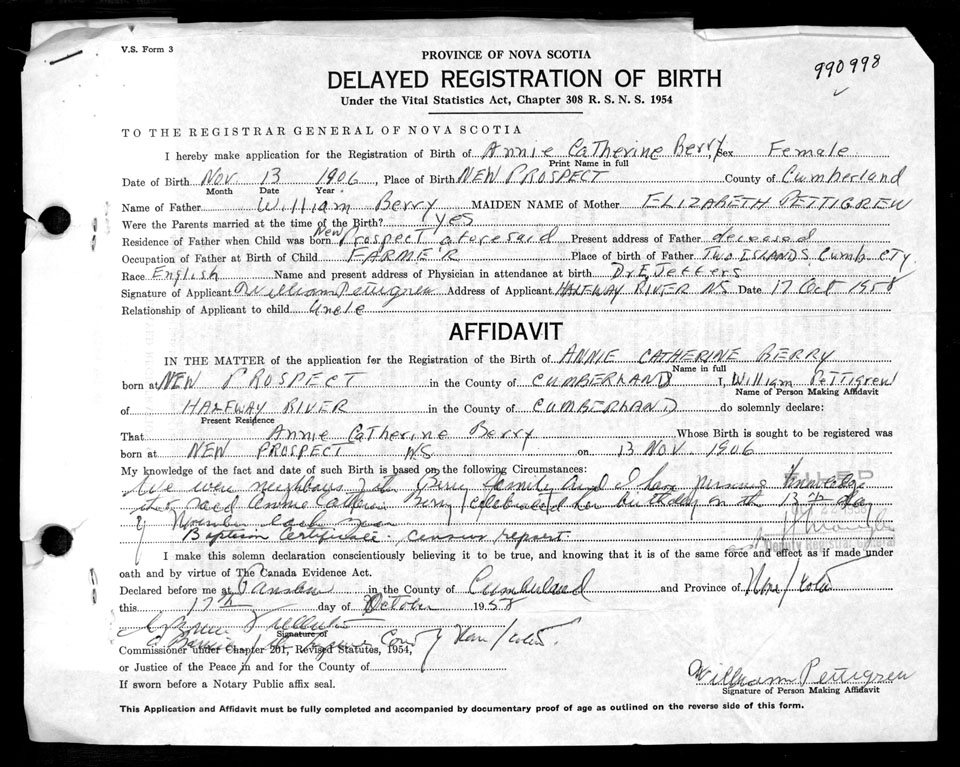 V.S. Form 3
PROVINCE OF NOVA SCOTIA
990998
DELAYED REGISTRATION OF BIRTH
Under the Vital Statistics Act, Chapter 308 R. S. N. S. 1954
TO THE REGISTRAR GENERAL OF NOVA SCOTIA
I hereby make application for the Registration of Birth of Annie Catherine Berry, Sex Female
Print Name in full
Date of Birth Nov 13 1906, Place of Birth NEW PROSPECT County of Cumberland
Month Date Year
Name of Father William Berry MAIDEN NAME of Mother ELIZABETH PETTIGREW
Were the Parents married at the time of the Birth? yes
Residence of Father when Child was born New Prospect aforesaid Present address of Father deceased
Occupation of Father at Birth of Child FARMER Place of birth of Father TWO ISLANDS Cumb CTY.
Race English Name and present address of Physician in attendance at birth Dr E Jeffers
Signature of Applicant William Pettigrew Address of Applicant HALFWAY RIVER NS Date 17 Oct 1958
Relationship of Applicant to child Uncle
AFFIDAVIT
IN THE MATTER of the application for the Registration of the Birth of ANNIE CATHERINE BERRY
Name in full
born at NEW PROSPECT in the County of CUMBERLAND I, William Pettigrew
Name of Person Making Affidavit
of HALFWAY RIVER in the County of CUMBERLAND do solemnly declare:
Present Residence
That Annie Catherine Berry Whose Birth is sought to be registered was
born at NEW PROSPECT NS on 13 NOV. 1906
My knowledge of the fact and date of such Birth is based on the following Circumstances:
We were neighbours of the Berry family and I have personal knowledge
FILED
that said Annie Catherine Berry celebrated her birthday on the 13th day
of November each year
Baptism Certificate. census report.
Deputy Registrar General
I make this solemn declaration conscientiously believing it to be true, and knowing that it is of the same force and effect as if made under
oath and by virtue of The Canada Evidence Act.
Declared before me at Parrsboro in the County of Cumberland and Province of Nova Scotia
this 17th day of October 1958
Signature of
County Nova Scotia.
Commissioner under Chapter 201, Revised Statutes, 1954,
or Justice of the Peace in and for the County of
William Pettigrew
If sworn before a Notary Public affix seal.
Signature of Person Making Affidavit
This Application and Affidavit must be fully completed and accompanied by documentary proof of age as outlined on the reverse side of this form.